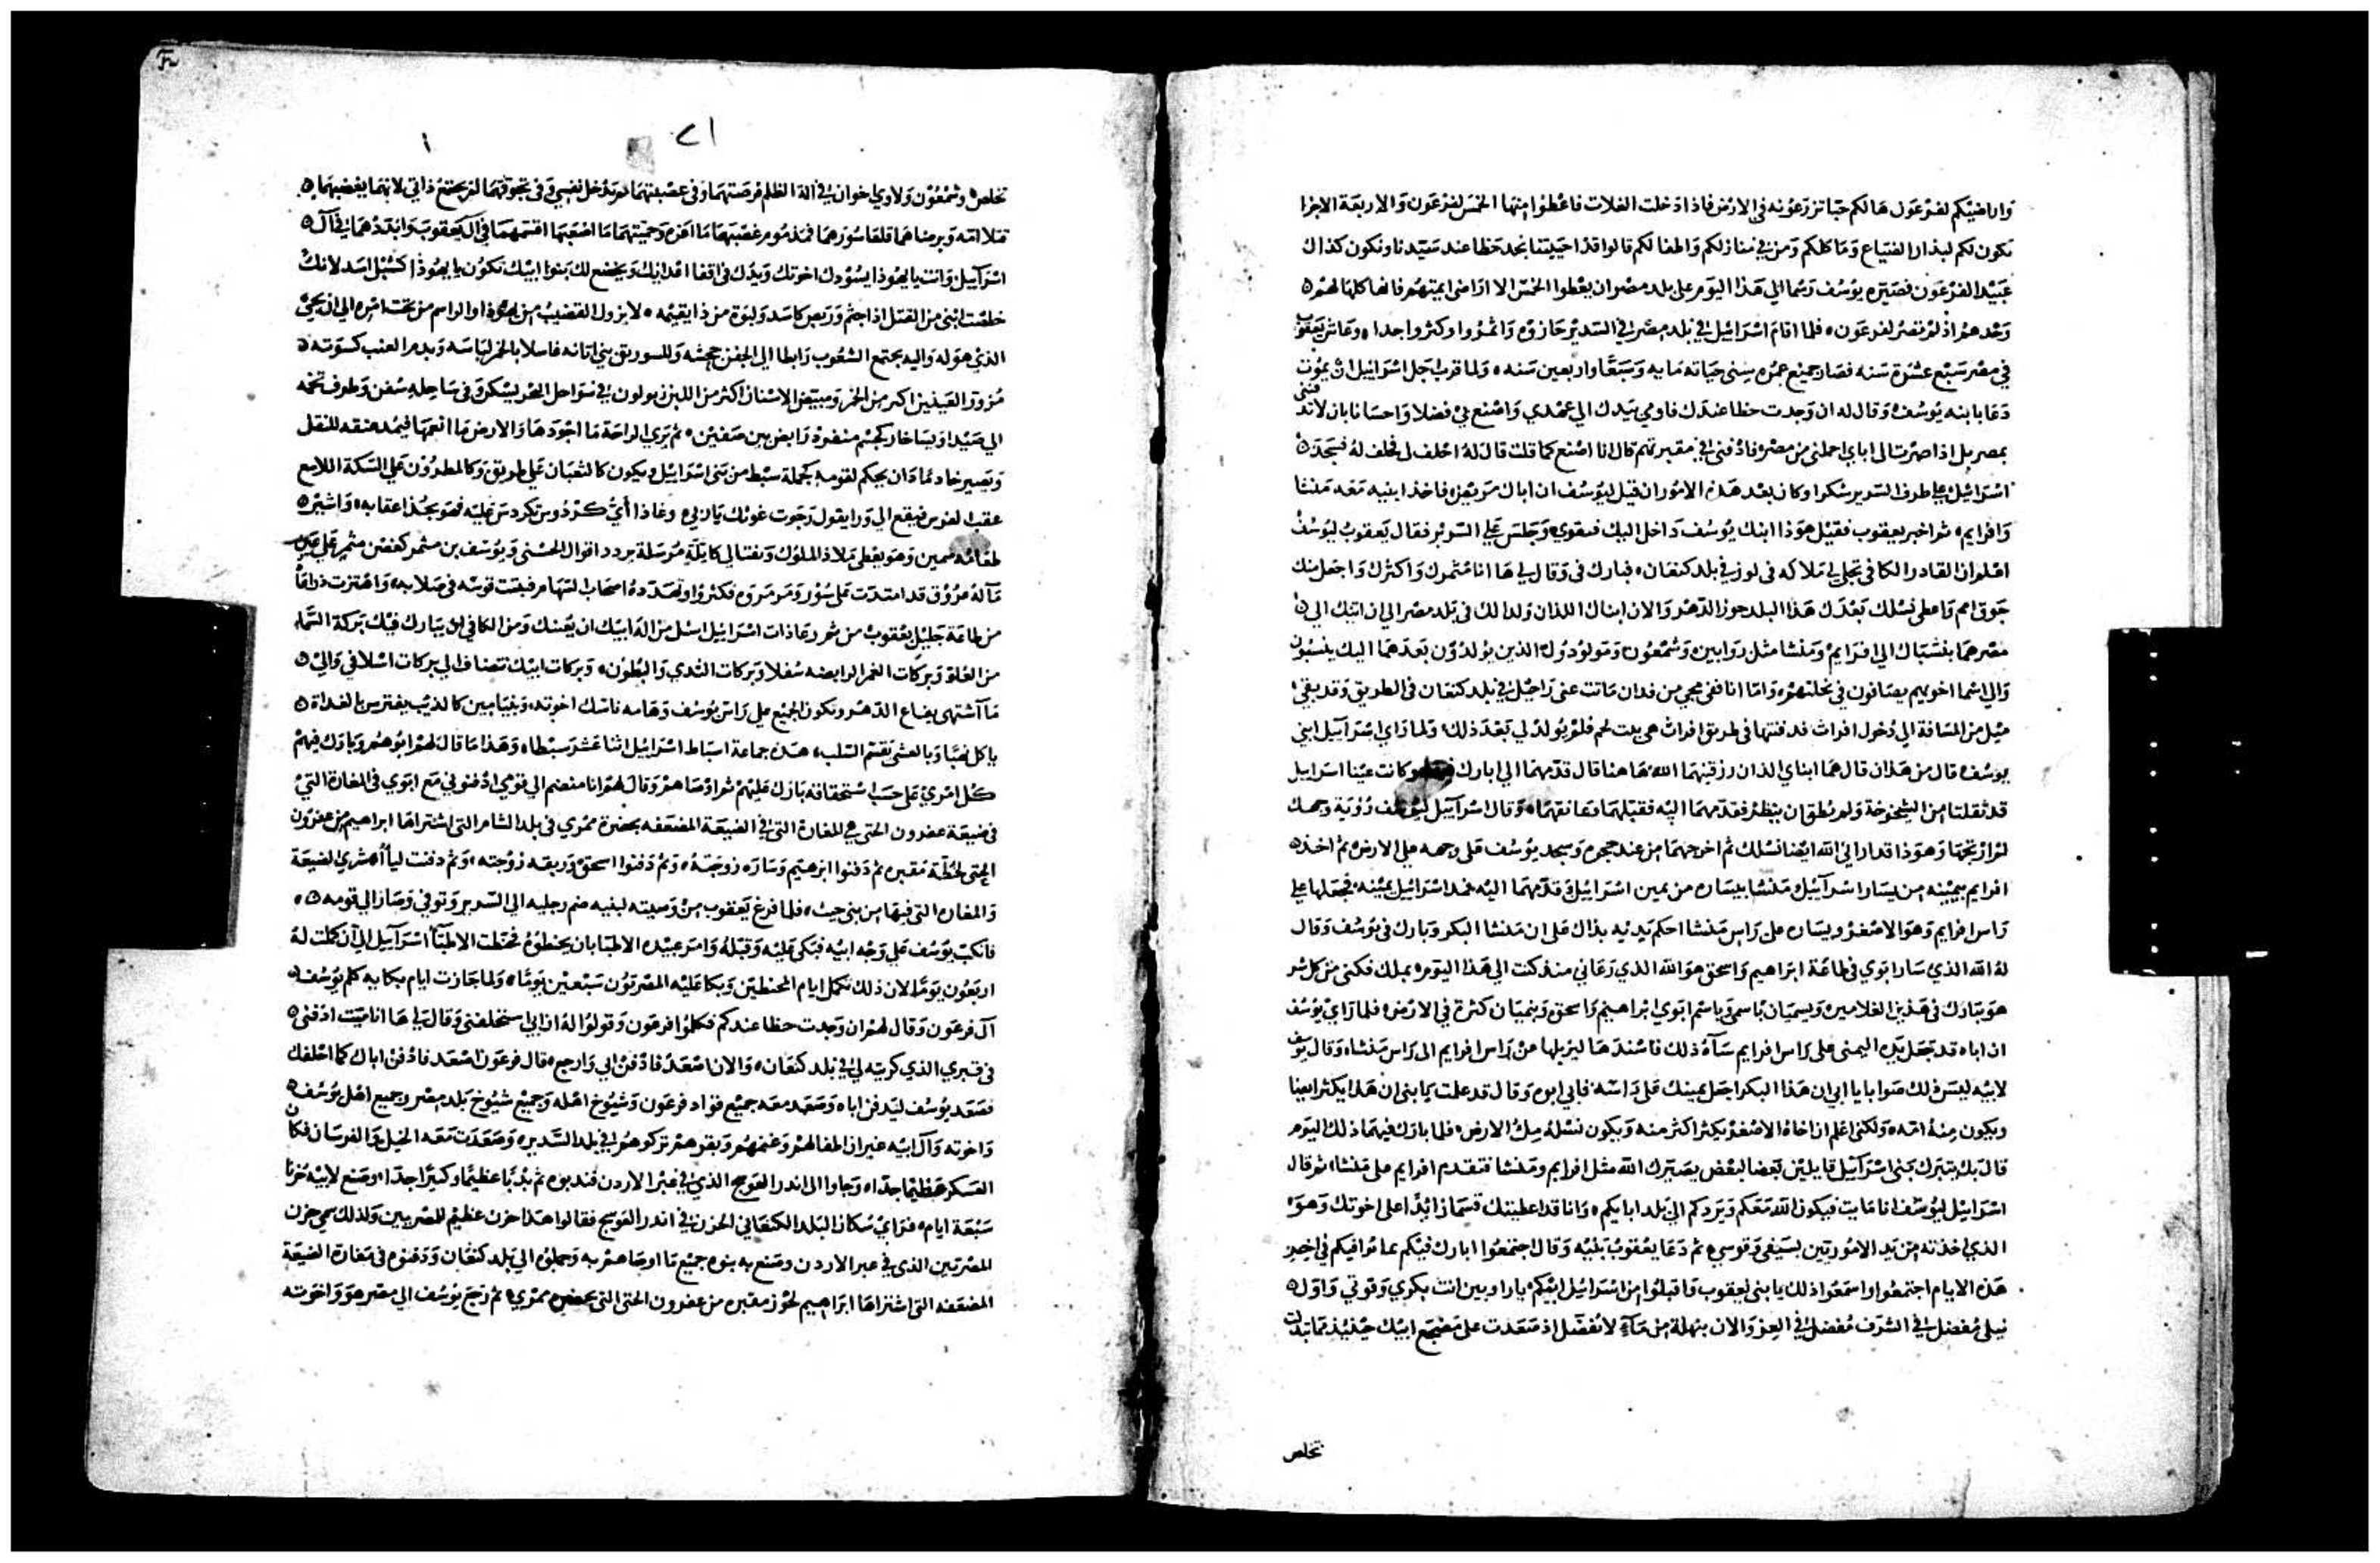 واراضيكم لفرعون هالكم حبا تزرعونه في الارض فاذا دخلت الغلات فاعطوا منها الخمس لفرعون والاربعة الاجزا
تكون لكم لبذار الضياع وماكلكم ومن في منازلكم واطفالكم قالوا قد احييتنا نجد حظا عند سيدنا ونكون كذاك
عبيدا لفرعون فصيره يوسف رسما الي هذا اليوم على بلد مصر ان يعطوا الخمس الا اراضى ايمتهم فانها كلها لهم
وحدهم اذ لم تصر لفرعون فلما اقام اسرائيل في بلد مصر في السدير حازوه واثمروا وكثروا جدا وعاش يعقوب
في مصر سبع عشرة سنه فصار جميع عمره سنى حياته مايه وسبعا واربعين سنه ولما قرب اجل اسرائيل ان يموت
دعا بابنه يوسف وقال له ان وجدت حظا عندك فاومي بيدك الي عهدي واصنع بي فضلا واحسانا بان لا تدفنني
بمصر بل اذا صرت الى اباي احملني من مصر فادفنى في مقبرتهم قال انا اصنع كما قلت قال له احلف لي فحلف له فسجد
اسرائيل على طرف السرير شكرا وكان بعد هذه الامور ان قيل ليوسف ان اباك مريض فاخذ ابنيه معه منشا
وافرايم ثم اخبر يعقوب فقيل هوذا ابنك يوسف داخل اليك فتقوي وجلس على السرير فقال يعقوب ليوسف
اعلم ان القادر الكافي تجلى لي ملاكه في لوز في بلد كنعان فبارك فى وقال لي ها انا مثمرك واكثرك واجعل منك
جوق امم واعطي نسلك بعدك هذا البلد حوز الدهر والان ابناك اللذان ولدا لك فى بلد مصر الي ان اتيك الي
مصر هما ينسبان الي افرايم ومنشا مثل روابين وشمعون ومولودوك الذين يولدون بعدهما اليك ينسبون
والي اسما اخوتهم يضافون في نحلتهم واما انا ففى مجي من فدان ماتت عني راحيل في بلد كنعان فى الطريق وقد بقي
ميل من المسافة الي دخول افراث فدفنتها فى طريق افراث هى بيت لحم فلم يولد لي بعد ذلك ولما راي اسرآييل ابني
يوسف قال من هذان قال هما ابناي الذان رزقنيهما الله هاهنا قال قدمهما الي ابارك وكانت عينا اسراييل
قد ثقلتا من الشيخوخة ولم يطق ان ينظر فقدمهما اليه فقبلهما وعانقهما وقال اسرآييل ليوسف رؤية وجهك
لم ارتجها وهوذا قد اراني الله ايضا نسلك ثم اخرجهما من عند حجره وسجد يوسف على وجهه على الارض ثم اخذ
افرايم بيمينه من يسار اسرآييل ومنشا بيساره من يمين اسرائيل وقدمهما اليه فمد اسرائيل يمينه فجعلها على
راس افرايم وهو الاصغر ويساره على راس منشا احكم يديه بذاك على ان منشا البكر وبارك فى يوسف وقال
له الله الذي سار ابوي في طاعة ابراهيم واسحق هو الله الذي رعاني منذ كنت الي هذا اليوم ملك فكنى من كل شر
هو يبارك فى هذين الغلامين ويسميان باسمى وباسم ابوي ابراهيم واسحق وينميان كثرة في الارض فلما راي يوسف
ان اباه قد جعل يده اليمنى على راس افرايم سآه ذلك فاسند ها ليزيلها من راس افرايم الى راس منشا وقال يوسف
لابيه ليس ذلك صوابا يا ابي ان هذا البكر اجعل يمينك على راسه فابي ابوه وقال قد علمت يا بني ان هذا يكثر ايضا
ويكون منه امه ولكني اعلم ان اخاه الاصغر يكثر اكثر منه ويكون نسله مل الارض فلما بارك فيهما ذلك اليوم
قال بك يتبرك بنى اسرآييل قايلين بعضا لبعض يصيرك الله مثل افرايم ومنشا فتقدم افرايم على منشا ثم قال
اسرائيل ليوسف انا مايت فيكون الله معكم ويردكم الي بلد ابايكم وانا قد اعطيتك قسما زائدا على اخوتك وهو
الذي اخذته من يد الاموريين بسيفي وقوسي ثم دعا يعقوب بنيه وقال اجتمعوا ابارك فيكم بما يوافيكم في اخر
هذه الايام اجتمعوا واسمعوا ذلك يا بني يعقوب واقبلوا من اسرائيل ابيكم يا راوبين انت بكري وقوتي واول
نيلى مفضل في الشرف مفضل في العز والان بنهلة من ماء لا تفضل اذ صعدت على مضجع ابيك حينئذ
تخلص
٢١
تخلص وشمعون ولاوي اخوان في الة الظلم فى عصبتهما لم تدخل نفسي وفى تجوقهما لم يجتمع ذاتي لانهما بغضبهما
قتلا امه وبرضاهما قلعا سورهما فمذموم غضبهما ما اعزه وحميتهما ما اصعبها اقسمهما في آل يعقوب وابددهما في آل
اسرآييل وانت يا يهوذا يسودك اخوتك ويدك في اقفا اعدائك ويخضع لك بنوا ابيك تكون يا يهوذا كشبل اسد لانك
خلصت ابنى من القتل اذا جثم وربض كاسد ولبوة من ذا يقيمه لا يزول القضيب من يهوذا والراسم من تحت امره الي ان يجي
الذي هو له واليه يجتمع الشعوب رابطا الي الجفن جحشه وللسوريق بني اتانه غاسلا بالخمر لباسه وبدم العنب كسوته
مزور العينين اكبر من الخمر ومبيض الاسنان اكثر من اللبن زبولون في سواحل البحر يسكن وفى ساحله سفن وطرف تخمه
الي صيدا ويساخار كجسم منفرد رابض بين صفين ثم يري الراحة ما اجودها والارض ما انعمها فيمد عنقه للنقل
ويصير خادما ودان يحكم لقومه كجملة سبط من بنى اسراييل ويكون كالثعبان على طريق وكالمطرون على السكة اللاسع
عقب الفرس فيقع الي ورا يقول رجوت غوثك يا رب وغاذا أيّ كردوس تكردس عليه فهو يجذ اعقابه واشير
طعامه سمين وهو يعطى ملاذ الملوك ونفتالي كايلة مرسلة يردد اقوال الحسني ويوسف بن مثمر كغصن مثمر على عين
مآله عروق قد امتدت على سور ومرمروه فكثروا وتعدده اصحاب السهام فبقيت قوسه في صلابه واهتزت ذراعا
من طاعة جليل يعقوب من ثم رعا ذات اسرائيل اسل من اله ابيك ان يعينك ومن الكافى ان يبارك فيك بركة السماء
من العلو وبركات الغمر الرابضه سفلا وبركات الثدي والبطون وبركات ابيك تنضاف الي بركات اسلافى والي
ما اشتهى بقاع الدهر وتكون الجميع على راس يوسف وهامه ناسك اخوته وبنيامين كالذيب يفترس بالغداة
ياكل نهبا وبالعشى يقسم السلب هذه جماعة اسباط اسرائيل اثنا عشر سبطا وهذا ما قال لهم ابوهم وبارك فيهم
كل امري على حسب استحقاقه بارك عليهم ثم اوصاهم وقال لهم انا منضم الي قومي ادفنوني مع ابوي في المغارة التي
في ضيعة عفرون الحتى في المغارة التي في الضيعة المضعفه بحضرة ممري فى بلد الشام التي اشتراها ابراهيم من عفرون
الحتى لحظة مقبره ثم دفنوا ابرهيم وساره زوجته وثم دفنوا اسحق وربقه زوجته وثم دفنت ليا شري الضيعة
والمغاره التي فيها من بني حيث فلما فرغ يعقوب من وصيته لبنيه ضم رجليه الى السرير وتوفي وصار الي قومه
فانكب يوسف على وجه ابيه فبكى عليه وقبله وامر عبيده الاطبا بان يحنطوه فحنطت الاطبآ اسرآييل الي ان كملت له
اربعون يوما لان ذلك تكمل ايام المحنطين وبكا عليه المصريون سبعين يوما ولما جازت ايام بكايه كلم يوسف
آل فرعون وقال لهم ان وجدت حظا عندكم فكلموا فرعون وقولوا له ان ابي استحلفنى وقال لي ها انا ميت ادفني
في قبري الذي كريته لي في بلد كنعان والان اصعد فادفن ابي وارجع قال فرعون اصعد فادفن اباك كما احلفك
فصعد يوسف ليدفن اباه وصعد معه جميع قواد فرعون وشيوخ اهله وجميع شيوخ بلد مصر وجميع اهل يوسف
واخوته وآل ابيه غير ان اطفالهم وغنمهم وبقرهم تركوهم في بلد السدير وصعدت معه الخيل والفرسان فكان
العسكر عظيما جدا وجاوا الى اندر العوسج الذي في عبر الاردن فندبوه ثم ندبا عظيما وكبيرا جدا وصنع لابيه حزنا
سبعة ايام فراي سكان البلد الكنعاني الحزن في اندر العوسج فقالوا هذا حزن عظيم للمصريين ولذلك سمى حزن
المصريين الذي في عبر الاردن وصنع به بنوه جميع ما اوصاهم به وحملوه الي بلد كنعان ودفنوه فى مغارة الضيعة
المضعفه التي اشتراها ابراهيم لحوز مقبره من عفرون الحتى التى بحضره ممري ثم رجع يوسف الي مصر هو واخوته